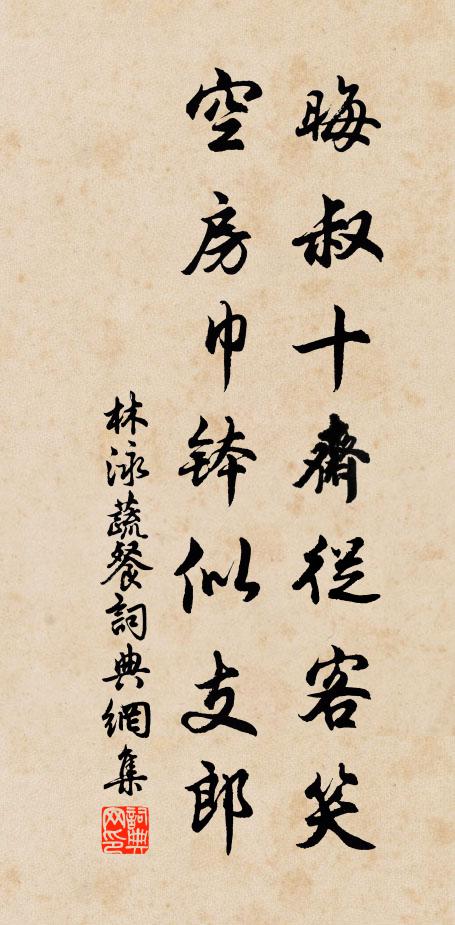 晦叔十齋從客笑
空房巾鉢似支郎
林泳蔬餐詞典網集
詞典網印